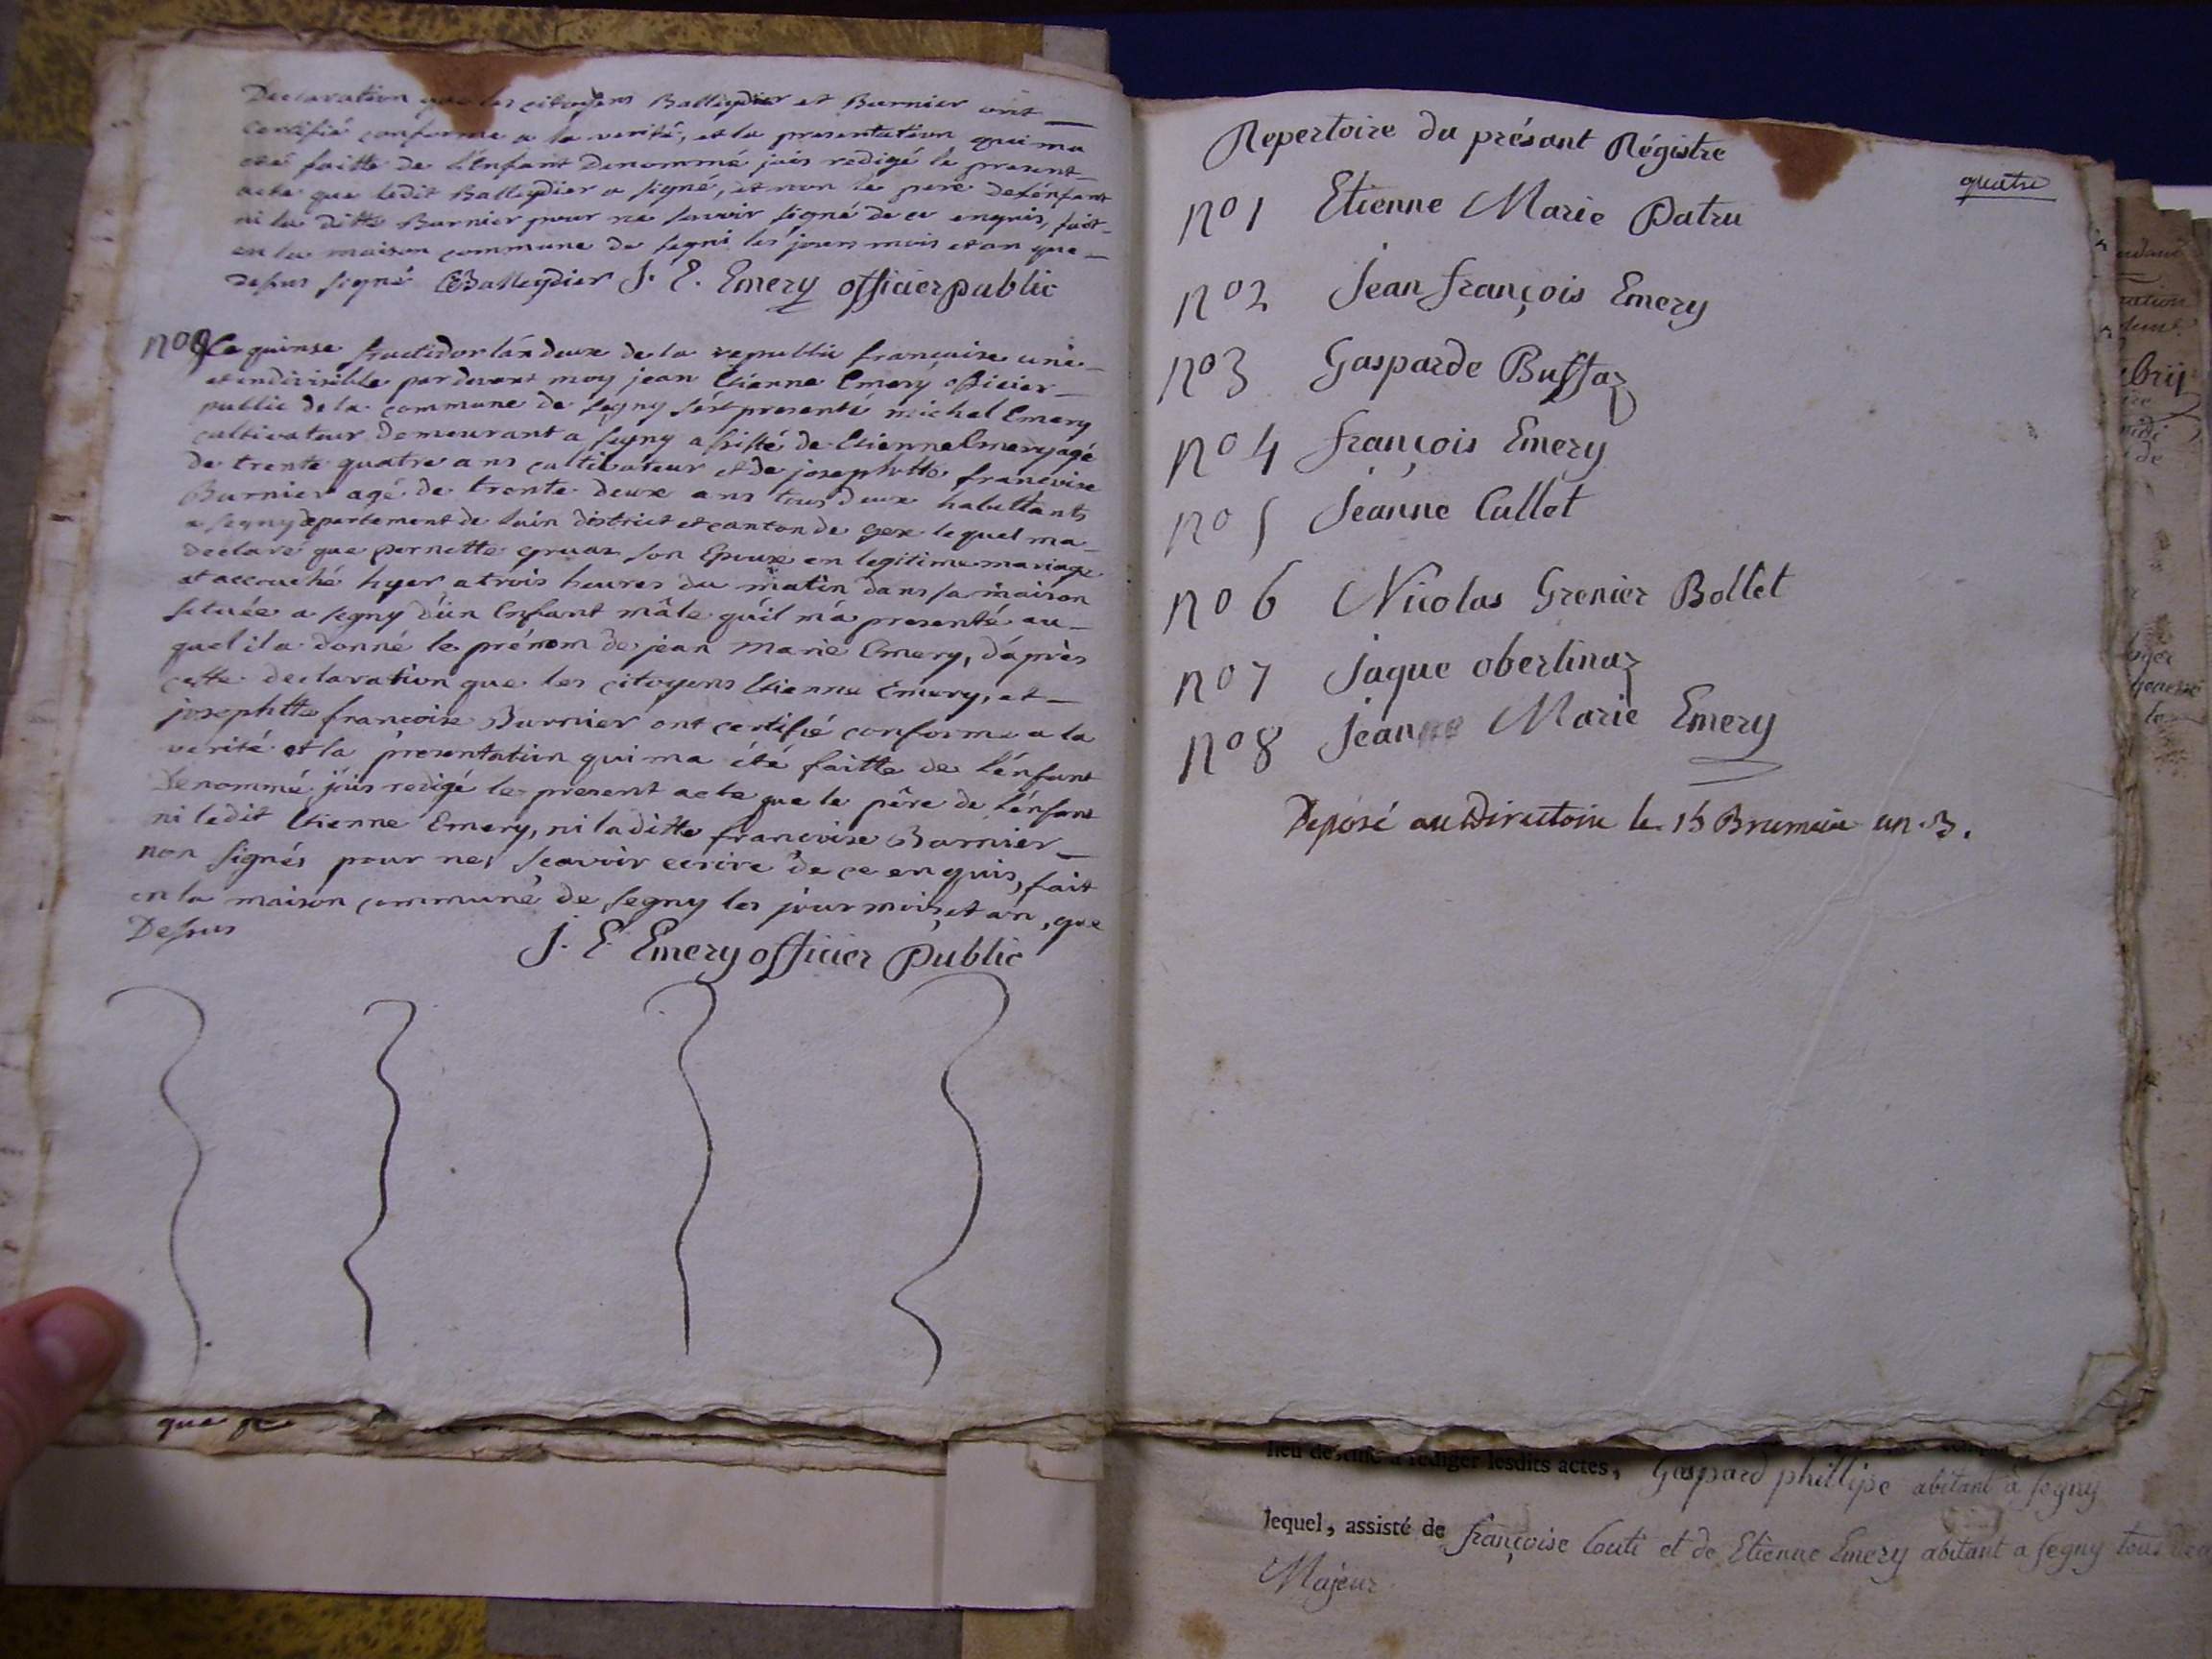 Declaration que les citoyens Balleydier et Burnier ont
certifié conforme a la verité, et la presentation qui ma
été faitte de l'énfant Denommé jais redigé le present
acte que ledit Balleydier a signé, et non le pere de lénfant
ni la ditte Burnier pour ne savoir signé de ce enquis, fait
en la maison commune de segni les jours mois et an que
desus signé Balleydier J. E. Emery officier public
no8 Le quinse fructidor lán deux de la republic françaice une
et indivisible par devant moy jean Etienne Emery officier
public de la commune de segny sést presenté michel Emery
cultivateur demeurant a segny assisté de Etienne Emery agé
de trente quatre ans cultivateur et de josephtte francoise
Burnier agé de trente deux ans tous deux habittants
a segny département de lain district et canton de gex lequel ma
declare que pernette gruaz son Epouse en legitime mariage
at accouché hyer a trois heures du matin dans sa maison
située a segny d'ún Enfant mâle qúil m'á presenté au
quel il a donné le prénom de jean Marie Emery, dáprès
cette declaration que les citoyens Etienne Emery, et
josephtte francoise Burnier ont certifié conforme a la
verité et la presentation qui ma été faitte de l'énfant
Denommé j'áis redigé le present acte que le père de l'énfant
ni ledit Etienne Emery, ni laditte francoise Burnier
non signés pour nes scavoir ecrire de ce enquis, fait
en la maison commune de segny les jour mois, et an, que
Desus
J. E. Emery officier Public
que
Repertoire du présant Régistre
quatre
no 1 Etienne Marie Patru
no 2 Jean françois Emery
no 3 Gasparde Buffaz
no 4 françois Emery
no 5 Jeanne Callet
no 6 Nicolas Grenier Bollet
no 7 Jaque oberlinaz
no 8 Jean Marie Emery
Déposé au Directoire le 15 Brumaire an 3.
lieu destiné à rédiger lesdits actes, Gaspard phillipe abitant à segny
lequel, assisté de françoise Couti et de Etienne Emery abitant a segny tous
Majeur